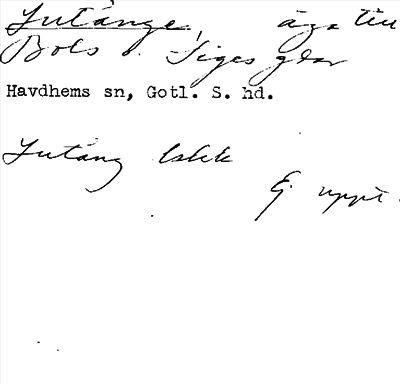 Lutänge, äga till
Bols o. Siges gdar
Havdhems sn, Gotl. S. hd.
Lutäng
Ej uppt.